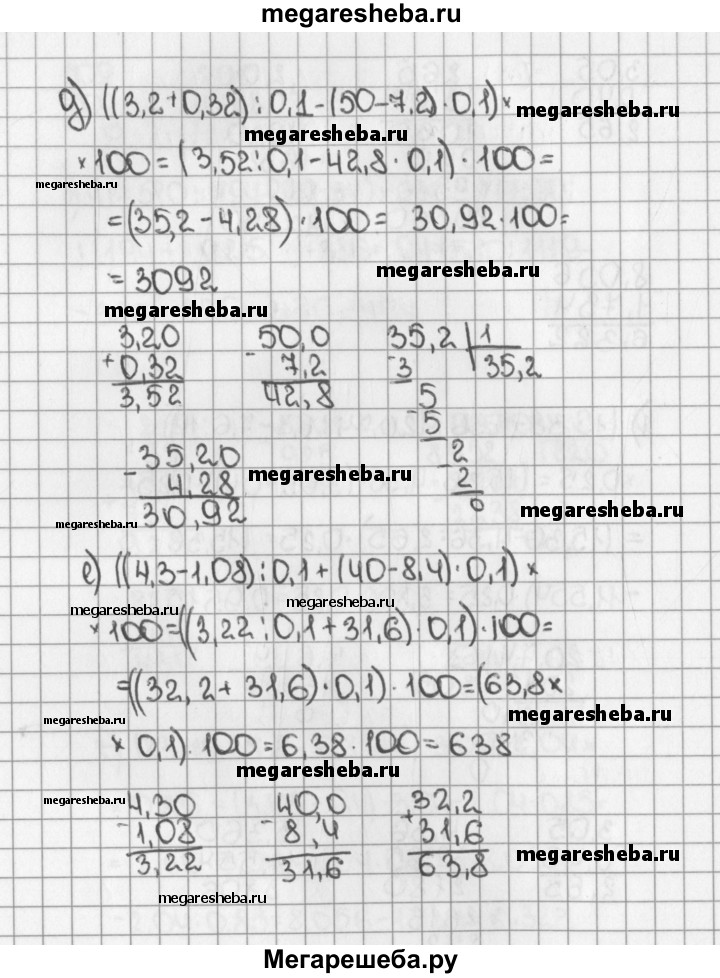 megaresheba.ru
д) ((3,2+0,32):0,1-(50-7,2)·0,1)×
megaresheba.ru
megaresheba.ru
×100=(3,52:0,1-42,8·0,1)·100=
megaresheba.ru
=(35,2-4,28)·100= 30,92·100=
=3092
megaresheba.ru
megaresheba.ru
3,20 50,0 35,2 | 1
+0,32 - 7,2 -3 35,2
3,52 42,8 5
-5
35,20 2
- 4,28 -2
30,92 0
megaresheba.ru
megaresheba.ru
megaresheba.ru
е) ((4,3-1,08):0,1+(40-8,4)·0,1)×
megaresheba.ru
megaresheba.ru
×100=((3,22:0,1+31,6)·0,1)·100=
=((32,2+31,6)·0,1)·100=(63,8×
megaresheba.ru
megaresheba.ru
×0,1)·100=6,38·100=638
megaresheba.ru
megaresheba.ru
4,30 40,0 32,2
-1,08 - 8,4 +31,6
3,22 31,6 63,8
megaresheba.ru
megaresheba.ru
Мегарешеба.ру